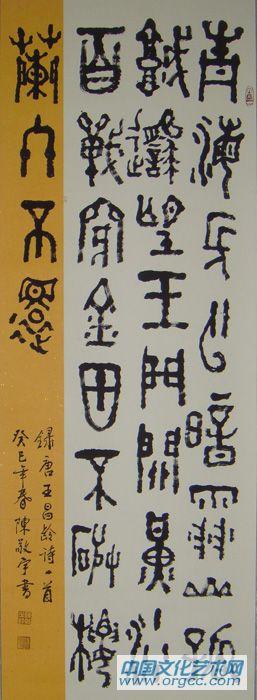 青海長雲暗雪山孤
城遙望玉門關黃沙
百戰穿金甲不破樓
蘭終不還
錄唐王昌齡詩一首
癸巳年春陳敬宇書
中国文化艺术网
www.orgcc.com